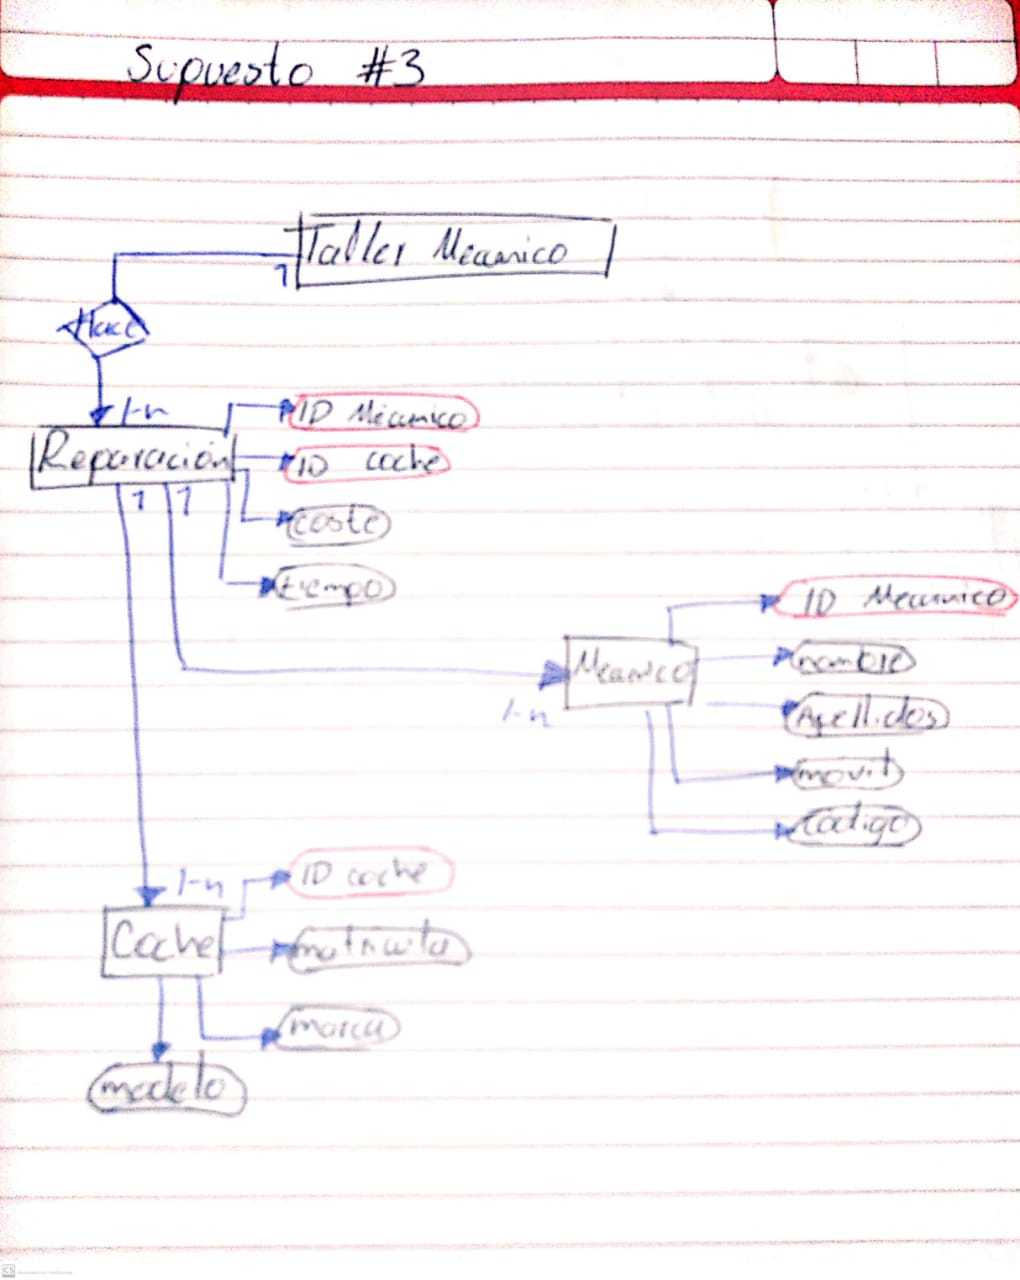 Supuesto #3
Taller Mecanico
1
Hace
1-n
ID Mecanico
Reparación
ID coche
1 1
coste
tiempo
ID Mecanico
Mecanico
nombre
1-n
Apellidos
movil
codigo
1-n
ID coche
Coche
matricula
marca
modelo
CS